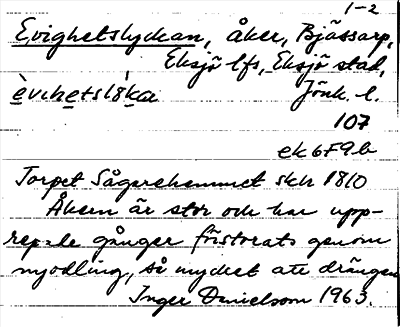 1-2
Evighetslyckan, åker, Bjässarp,
Eksjö lfs, Eksjö stad,
èvıhetslỳka Jönk. l.
107
ek 6F9b
Torpet Sågarehemmet skh 1810
Åkern är stor och har upp-
repade gånger förstorats genom
nyodling, så mycket att drängen
Inger Danielsson 1963.